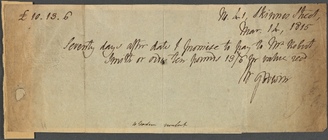 £ 10. 13. 6
No 41, Skinner Street,
Mar. 14, 1815
Seventy days after date I promise to pay to Mr Robert
Smith or order Ten pounds 13/6 for value recd
W Godwin